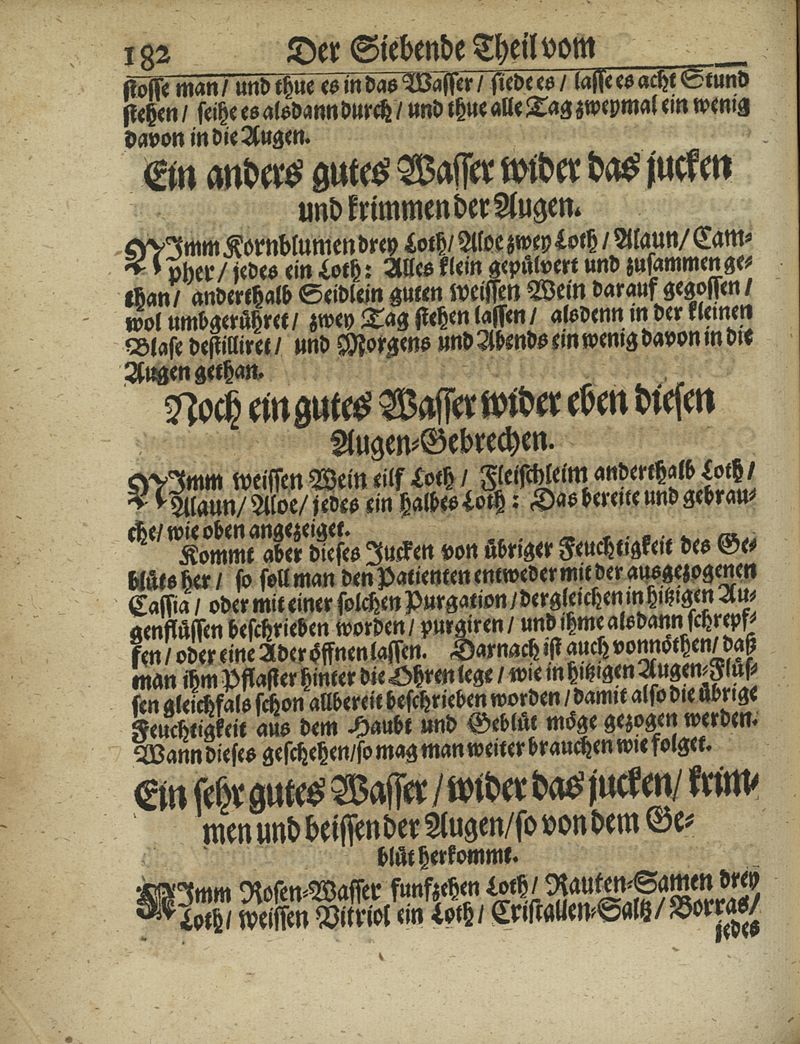 182 Der Siebende Theil vom
stosse man / und thue es in das Wasser / siede es / lasse es acht Stund
stehen / seihe es alsdann durch / und thue alle Tag zweymal ein wenig
davon in die Augen.
Ein anders gutes Wasser wider das jucken
und krimmen der Augen.
NImm Kornblumen drey Loth / Aloe zwey Loth / Alaun / Cam-
pher / jedes ein Loth: Alles klein gepülvert und zusammen ge-
than / anderthalb Seidlein guten weissen Wein darauf gegossen /
wol umbgerühret / zwey Tag stehen lassen / alsdenn in der kleinen
Blase destilliret / und Morgens und Abends ein wenig davon in die
Augen gethan.
Noch ein gutes Wasser wider eben diesen
Augen-Gebrechen.
NImm weissen Wein eilf Loth / Fleischleim anderthalb Loth /
Alaun / Aloe / jedes ein halbes Loth: Das bereite und gebrau-
che / wie oben angezeiget.
Kommt aber dieses Jucken von übriger Feuchtigkeit des Ge-
blüts her / so soll man den Patienten entweder mit der ausgezogenen
Cassia / oder mit einer solchen Purgation / dergleichen in hitzigen Au-
genflüssen beschrieben worden / purgiren / und ihme alsdann schrepf-
fen / oder eine Ader öffnen lassen. Darnach ist auch vonnöthen / daß
man ihm Pflaster hinter die Ohren lege / wie in hitzigen Augen-Flüs-
sen gleichfals schon allbereit beschrieben worden / damit also die übrige
Feuchtigkeit aus dem Haubt und Geblüt möge gezogen werden.
Wann dieses geschehen / so mag man weiter brauchen wie folget.
Ein sehr gutes Wasser / wider das jucken / krim-
men und beissen der Augen / so von dem Ge-
blüt herkommt.
NImm Rosen-Wasser funfzehen Loth / Rauten-Samen drey
Loth / weissen Vitriol ein Loth / Cristallen-Saltz / Borras /
jedes